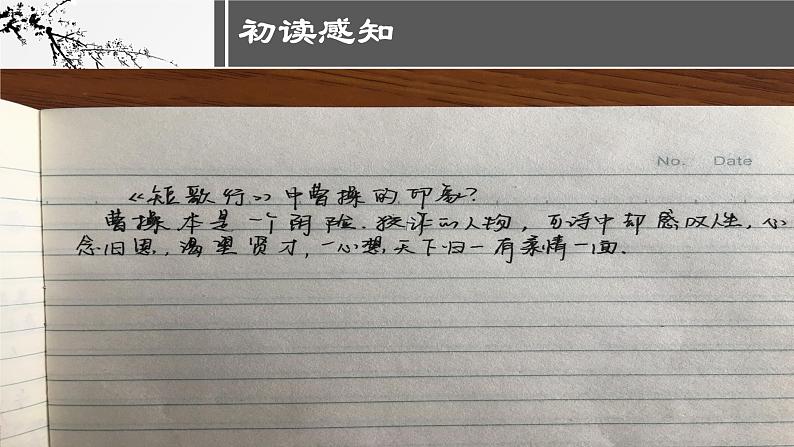 初读感知
No. Date
《短歌行》中曹操的印象?
曹操本是一个阴险.狡诈的人物,而诗中却感叹人生,心
念旧恩,渴望贤才,一心想天下归一有柔情一面.